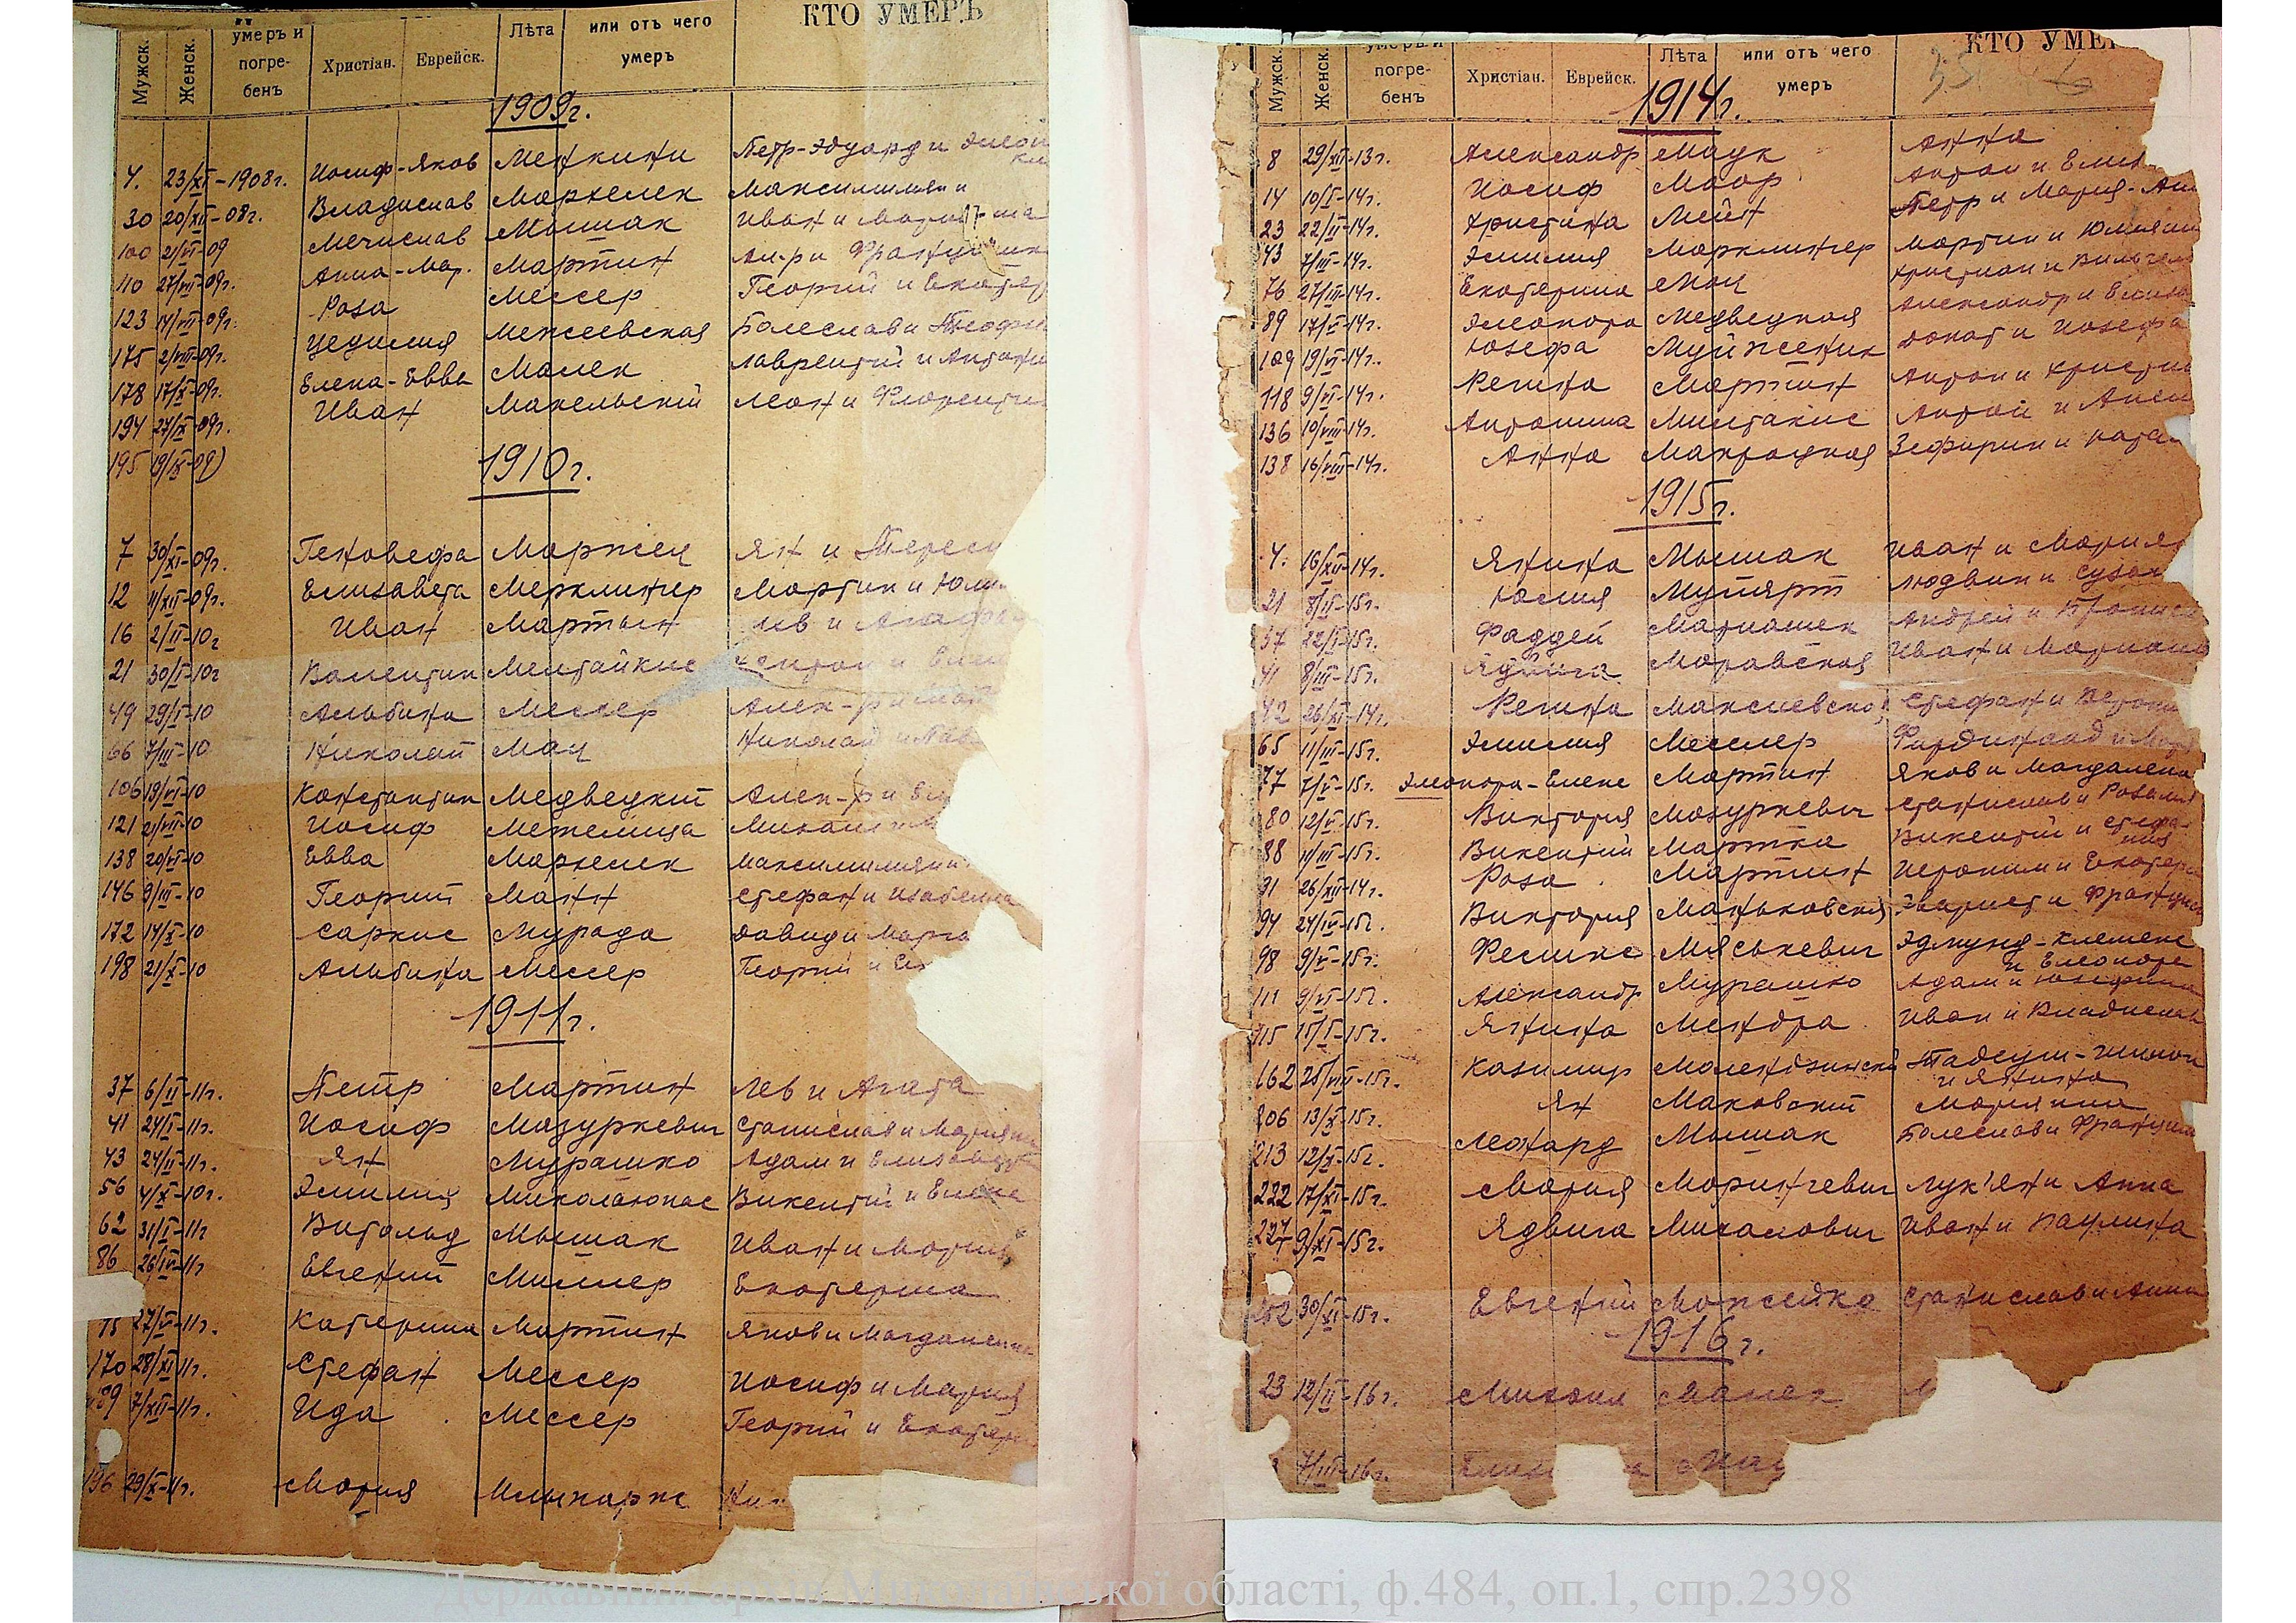 Мужск. Женск. умеръ и погре-бенъ Христіан. Еврейск. Лѣта или отъ чего умеръ КТО УМЕРЪ
1909г.
4. 23/XI-1908г. Иосиф-Яков Менкини Петр-Эдуард и
30 20/XII-08г. Владислав Мархелек Максимилиан и
100 21/VI-09 Мечислав Мышак Иван и
110 27/VII-09г. Анна-Мар. Мартин Ал-р и
123 14/VII-09г. Роза Мессер Георгий и Екатер
175 2/VIII-09г. Цецилия Межеевская Болеслав и Теофи
178 17/X-09г. Елена-Евва Малек Лаврентий и Антони
194 27/IX-09г. Иван Макельский Леон и Флоренти
195 19/IX-09)
1910г.
7 30/XI-09г. Геновефа Маржец Ян и Терес
12 11/XII-09г. Елизавета Мерклингер Мартин и Юли
16 2/II-10г Иван Мартын Лев и Агаф
21 30/I-10г Валентин Ментайкис и
49 29/I-10 Альбина Мессер Алек-р и
66 7/III-10 Николай Мац Николай и
106 19/VI-10 Константин Медведкий Алек-р и
121 21/VII-10 Иосиф Межелица
138 20/VI-10 Евва Мархелек Максимилиян и
146 9/III-10 Георгий Манн Стефан и Изабелла
172 14/X-10 Саркис Мурада Давид и
198 21/X-10 Альбина Мессер Георгий и
1911г.
37 6/II-11г. Петр Мартин Лев и Агата
41 24/I-11г. Иосиф Мазуркевич Станислав и
43 24/II-11г. Ян Мурашко Адам и
56 4/X-10г. Эмилия Миколаюнас Викентий и Елена
62 31/I-11г Витольд Мышак Иван и Мария
86 26/IV-11г Евгений Миллер Екатерина
27/V-11г. Катерина Мартин Яков и Магдалена
170 28/XI-11г. Стефан Мессер Иосиф и Мария
7/XII-11г. Ида Мессер Георгий и Екатери
196 29/X-11г. Мария
Мужск. Женск. умеръ и погре-бенъ Христіан. Еврейск. Лѣта или отъ чего умеръ КТО УМЕ
1914г.
8 29/XII-13г. Александр Маук Анна
14 10/I-14г. Иосиф Маор Антон и
23 22/II-14г. Христина Мейн Петр и Мария-
43 7/III-14г. Эмилия Марклингер Мартин и
76 27/III-14г. Екатерина Мац Христиан и
89 17/V-14г. Элеонора Медведкая Александр и
109 19/VI-14г. Юзефа Муйженик Донат и Иозефа
118 9/VI-14г. Регина Мартин Антон и
136 19/VIII-14г. Антонина Милтакис Антон и
138 16/VIII-14г. Анна Макрацкая Зефирин и
1915г.
4. 16/XII-14г. Янина Мышак Иван и Мария
21 8/II-15г. Юлия Мутярт Людвик и
37 22/I-15г. Фаддей Матиашек Андрей и
41 8/III-15г. Ядвига Моравская Иван и
42 26/XI-14г. Регина Максиевская Стефан и
65 11/IV-15г. Эмилия Мессер Фирдинанд и
77 7/V-15г. Элеонора-Елена Мартин Яков и Магдалена
80 12/V-15г. Виктория Мазуркевич Станислав и Розалия
88 11/III-15г. Викентий Мартка Викентий и Стефа-ния
91 26/XII-14г. Роза Мартин Иероним и Екатер
94 24/IV-15г. Виктория Маньковская Эварист и
98 9/V-15г. Феликс Мяськевич Эдмунд-Клеменс и Елеонора
111 9/VI-15г. Александр Мурашко Адам и
115 15/I-15г. Янина Мендра Иван и Владислав
162 25/VIII-15г. Казимир Малендзинский Тадеуш-Шимон и Янина
206 13/X-15г. Ян Маковский Марианна
213 12/X-15г. Леонард Мышак Болеслав и
222 17/XI-15г. Мария Маринчевич Лук'ян и Анна
227 9/XI-15г. Ядвига Михалович Иван и Паулина
252 30/XI-15г. Евгений Можейко Станислав и Анна
1916г.
23 12/II-16г. Михаил Малек
7/III-16г.
Державний архів Миколаївської області, ф.484, оп.1, спр.2398